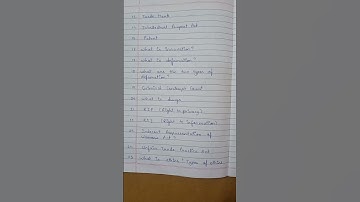 Trade Mark
Intellectual Propert Act
Patent
What is Innovation?
What is defamation?
What are the two types of
defamation?
Criminal Contempt Court
What is design
RTP (Right to privacy)
RTI (Right to Information)
Indecent Representation of
Act?
Unfair Trade Practice Act
What is ethics? Types of ethics